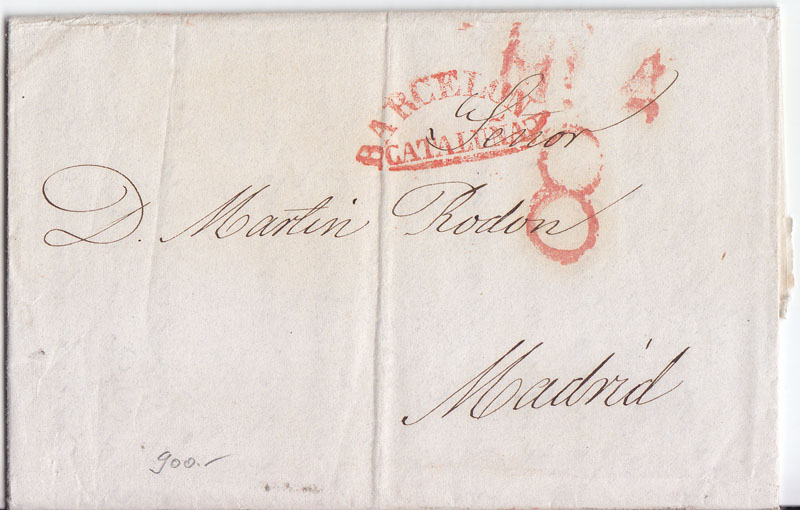 BARCELONA
CATALUÑA
4
Señor
8
D. Martin Rodon
Madrid
900.-